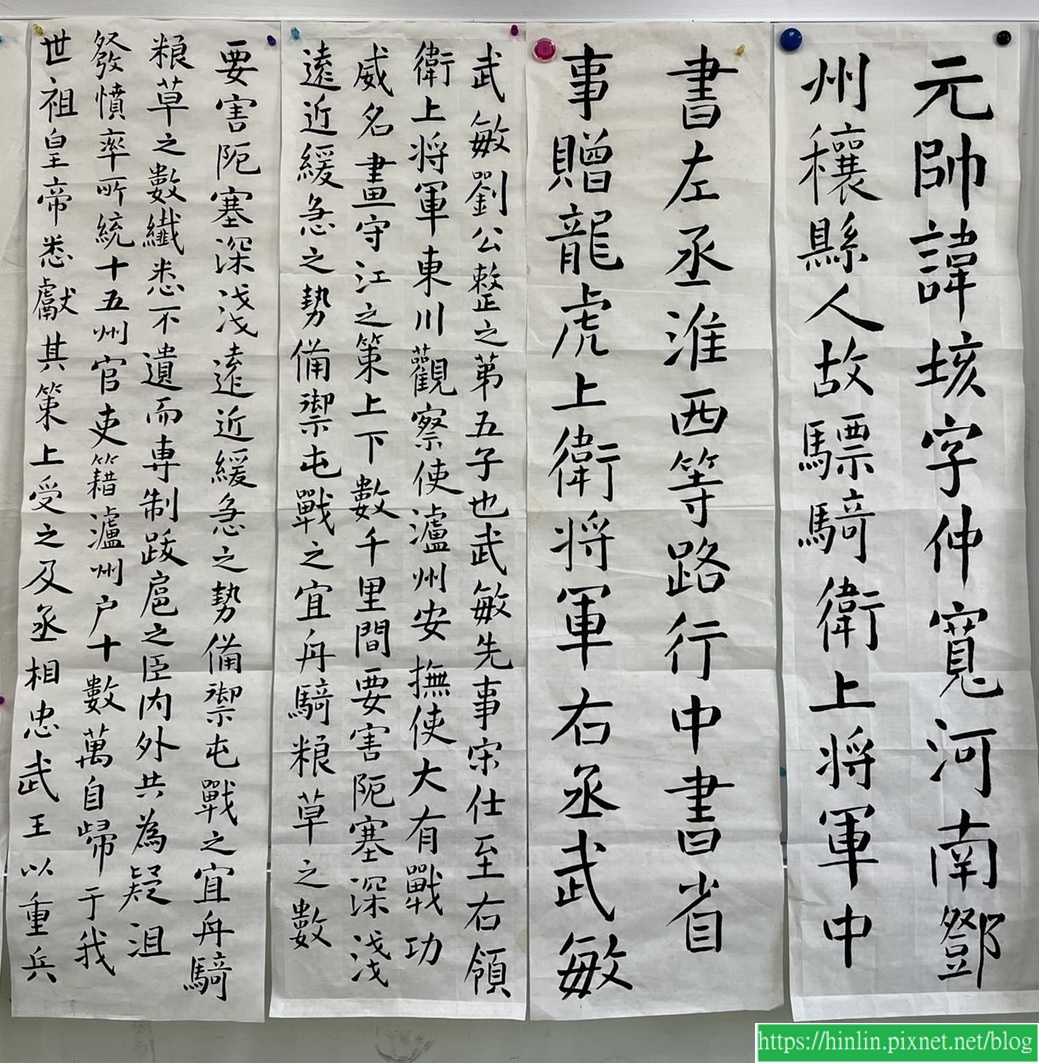 元帥諱垓字仲寬河南鄧
州穰縣人故驃騎衛上將軍中
書左丞淮西等路行中書省
事贈龍虎上衛將軍右丞武敏
武敏劉公整之第五子也武敏先事宋仕至右領
衛上將軍東川觀察使瀘州安撫使大有戰功
威名畫守江之策上下數千里間要害阨塞深淺
遠近緩急之勢備禦屯戰之宜舟騎粮草之數
要害阨塞深淺遠近緩急之勢備禦屯戰之宜舟騎
粮草之數纖悉不遺而専制跋扈之臣內外共為疑沮
發憤率所統十五州官吏籍瀘州户十數萬自歸于我
世祖皇帝悉獻其策上受之及丞相忠武王以重兵
https://hinlin.pixnet.net/blog